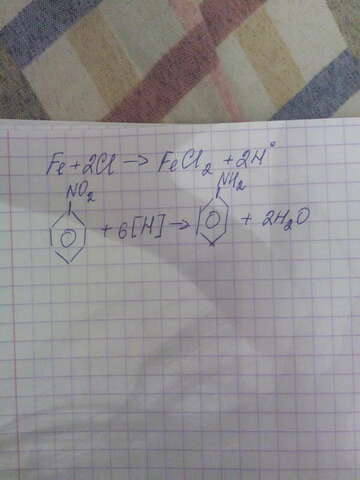 Fe + 2Cl → FeCl₂ + 2H°
NO₂ NH₂
+ 6[H] → + 2H₂O